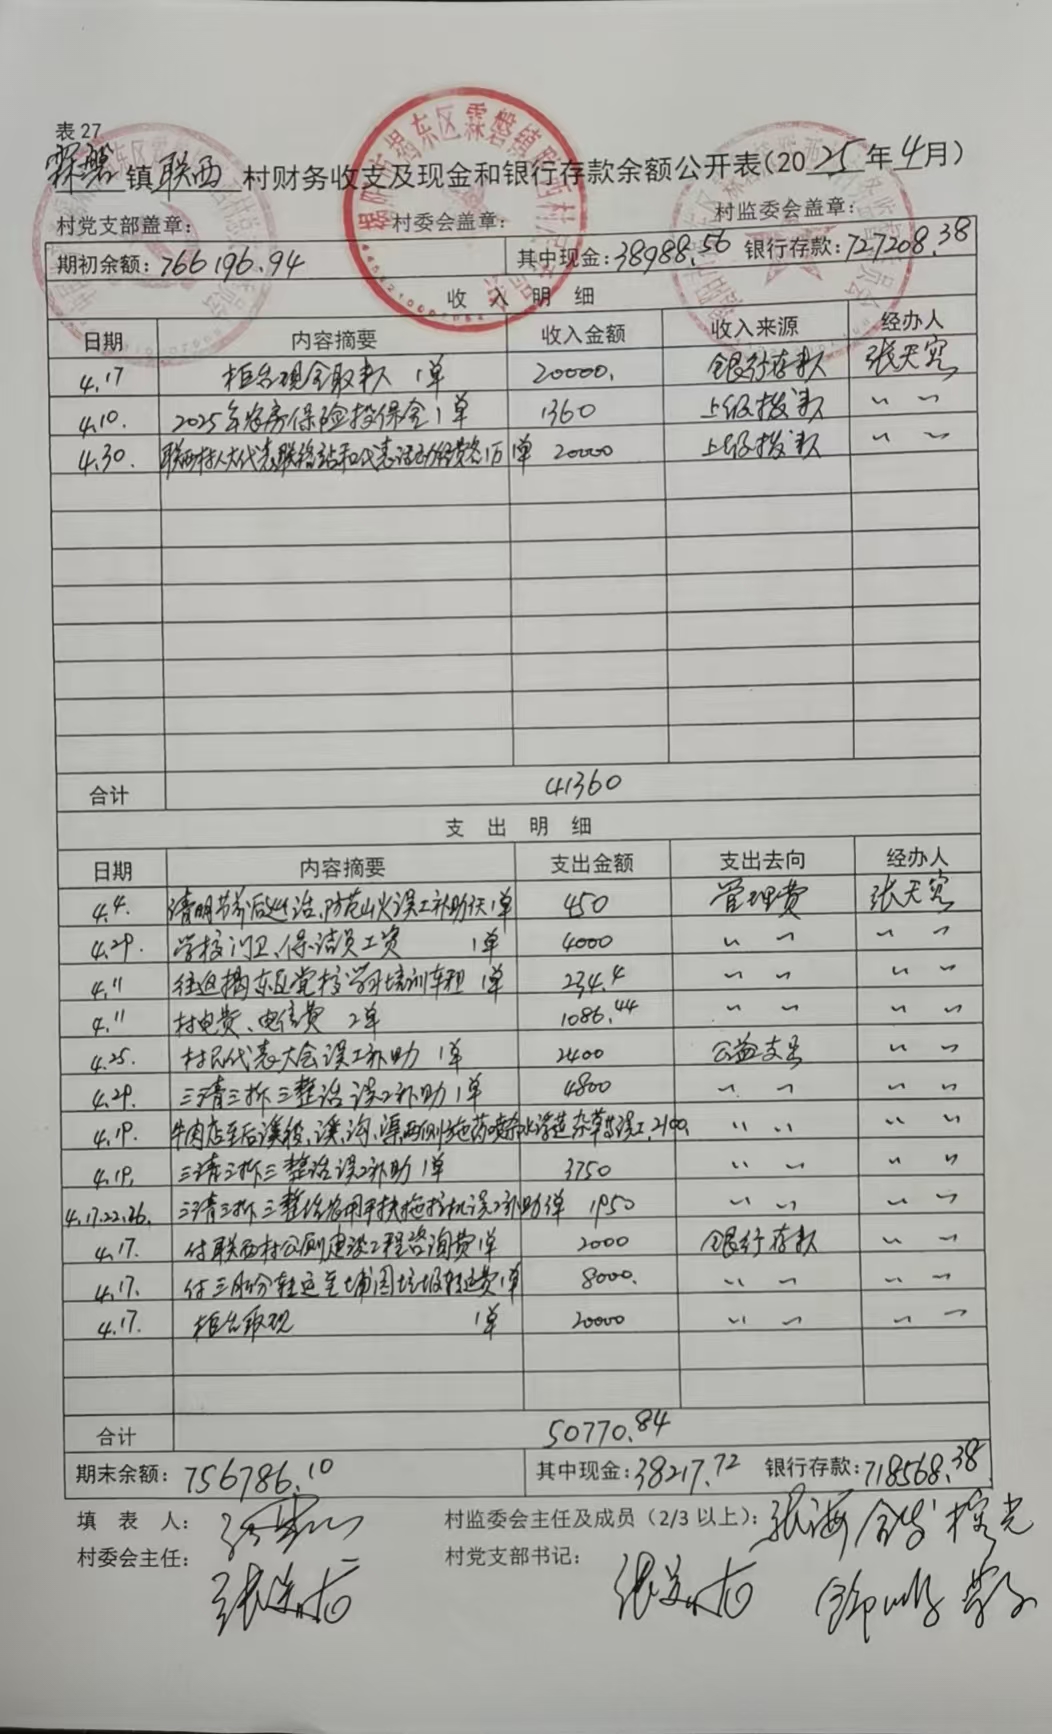 表 27
霖磐 镇 联西 村财务收支及现金和银行存款余额公开表(2025年4月)
村党支部盖章: 村委会盖章: 村监委会盖章:
期初余额: 766196.94 其中现金: 38988.56 银行存款: 727208.38
收 入 明 细
日期 内容摘要 收入金额 收入来源 经办人
4.17 柜台现金取款 1单 20000. 银行存款 张天
4.10. 2025年农房保险投保金1单 1360 上级拨款 〃 〃
4.30. 联西村人大代表联络站和代表活动经费各1万 1单 20000 上级拨款 〃 〃
合计 41360
支 出 明 细
日期 内容摘要 支出金额 支出去向 经办人
4.4. 清明节前后巡治、防范山火误工补助 1单 450 管理费 张天
4.29. 学校门卫、保洁员工资 1单 4000 〃 〃 〃 〃
4.11 往返揭东区党校学习培训车租 1单 234.4 〃 〃 〃 〃
4.11 村电费、电信费 2单 1086.44 〃 〃 〃 〃
4.25. 村民代表大会误工补助 1单 2400 公益支出 〃 〃
4.29. 三清三拆三整治误工补助1单 4800 〃 〃 〃 〃
4.19. 牛肉店至后溪段、溪、沟、渠两侧施药喷除水浮莲杂草等误工. 2100. 〃 〃 〃 〃
4.19. 三清三拆三整治误工补助1单 3750 〃 〃 〃 〃
4.17.22.26. 三清三拆三整治农用手扶拖拉机误工补助3单 1950 〃 〃 〃 〃
4.17. 付联西村公厕建设工程咨询费1单 2000 银行存款 〃 〃
4.17. 付三月份转运至埔围垃圾转运费1单 8000. 〃 〃 〃 〃
4.17. 柜台取现 1单 20000 〃 〃 〃 〃
合计 50770.84
期末余额: 756786.10 其中现金: 38217.72 银行存款: 718568.38
填 表 人: 村监委会主任及成员(2/3以上):
村委会主任: 村党支部书记: